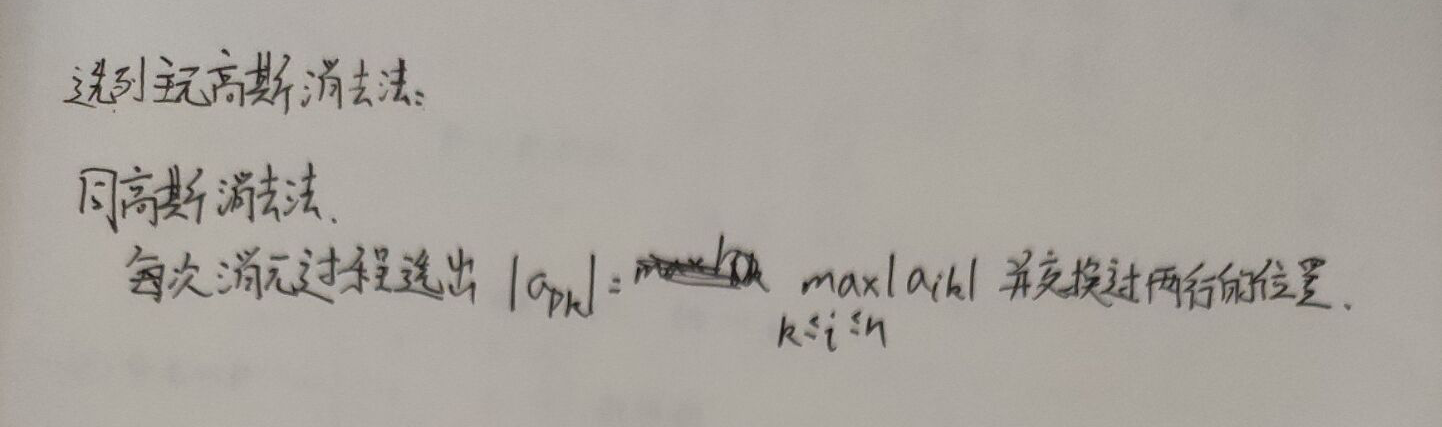 选列主元高斯消去法:
同高斯消去法.
每次消元过程选出 |apk| = max|aik| 并交换过两行的位置.
k≤i≤n